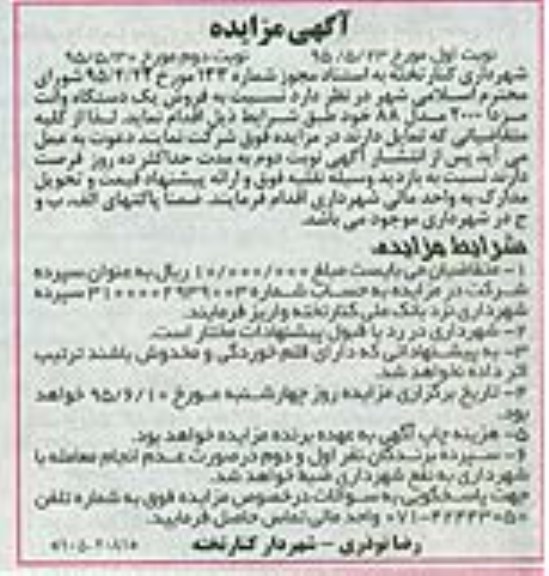 آگهی مزایده
نوبت اول مورخ ۹۵/۵/۲۳ نوبت دوم مورخ ۹۵/۵/۳۰
شهرداری کنارتخته به استناد مجوز شماره ۱۴۳ مورخ ۹۵/۲/۲۲ شورای
محترم اسلامی شهر در نظر دارد نسبت به فروش یک دستگاه وانت
مزدا ۲۰۰۰ مدل ۸۸ خود طبق شرایط ذیل اقدام نماید. لذا از کلیه
متقاضیانی که تمایل دارند در مزایده فوق شرکت نمایند دعوت به عمل
می آید پس از انتشار آگهی نوبت دوم به مدت حداکثر ده روز فرصت
دارند نسبت به بازدید وسیله نقلیه فوق و ارائه پیشنهاد قیمت و تحویل
مدارک به واحد مالی شهرداری اقدام فرمایند. ضمناً پاکتهای الف، ب و
ج در شهرداری موجود می باشد.
شرایط مزایده:
۱- متقاضیان می بایست مبلغ ۱۰/۰۰۰/۰۰۰ ریال به عنوان سپرده
شرکت در مزایده به حساب شماره ۳۱۰۰۰۰۲۹۳۹۰۰۳ سپرده
شهرداری نزد بانک ملی کنارتخته واریز فرمایند.
۲- شهرداری در رد یا قبول پیشنهادات مختار است.
۳- به پیشنهاداتی که دارای قلم خوردگی و مخدوش باشند ترتیب
اثر داده نخواهد شد.
۴- تاریخ برگزاری مزایده روز چهارشنبه مورخ ۹۵/۶/۱۰ خواهد
بود.
۵- هزینه چاپ آگهی به عهده برنده مزایده خواهد بود.
۶- سپرده برندگان نفر اول و دوم درصورت عدم انجام معامله با
شهرداری به نفع شهرداری ضبط خواهد شد.
جهت پاسخگویی به سوالات درخصوص مزایده فوق به شماره تلفن
واحد مالی تماس حاصل فرمایید.
رضا نوذری - شهردار کنارتخته